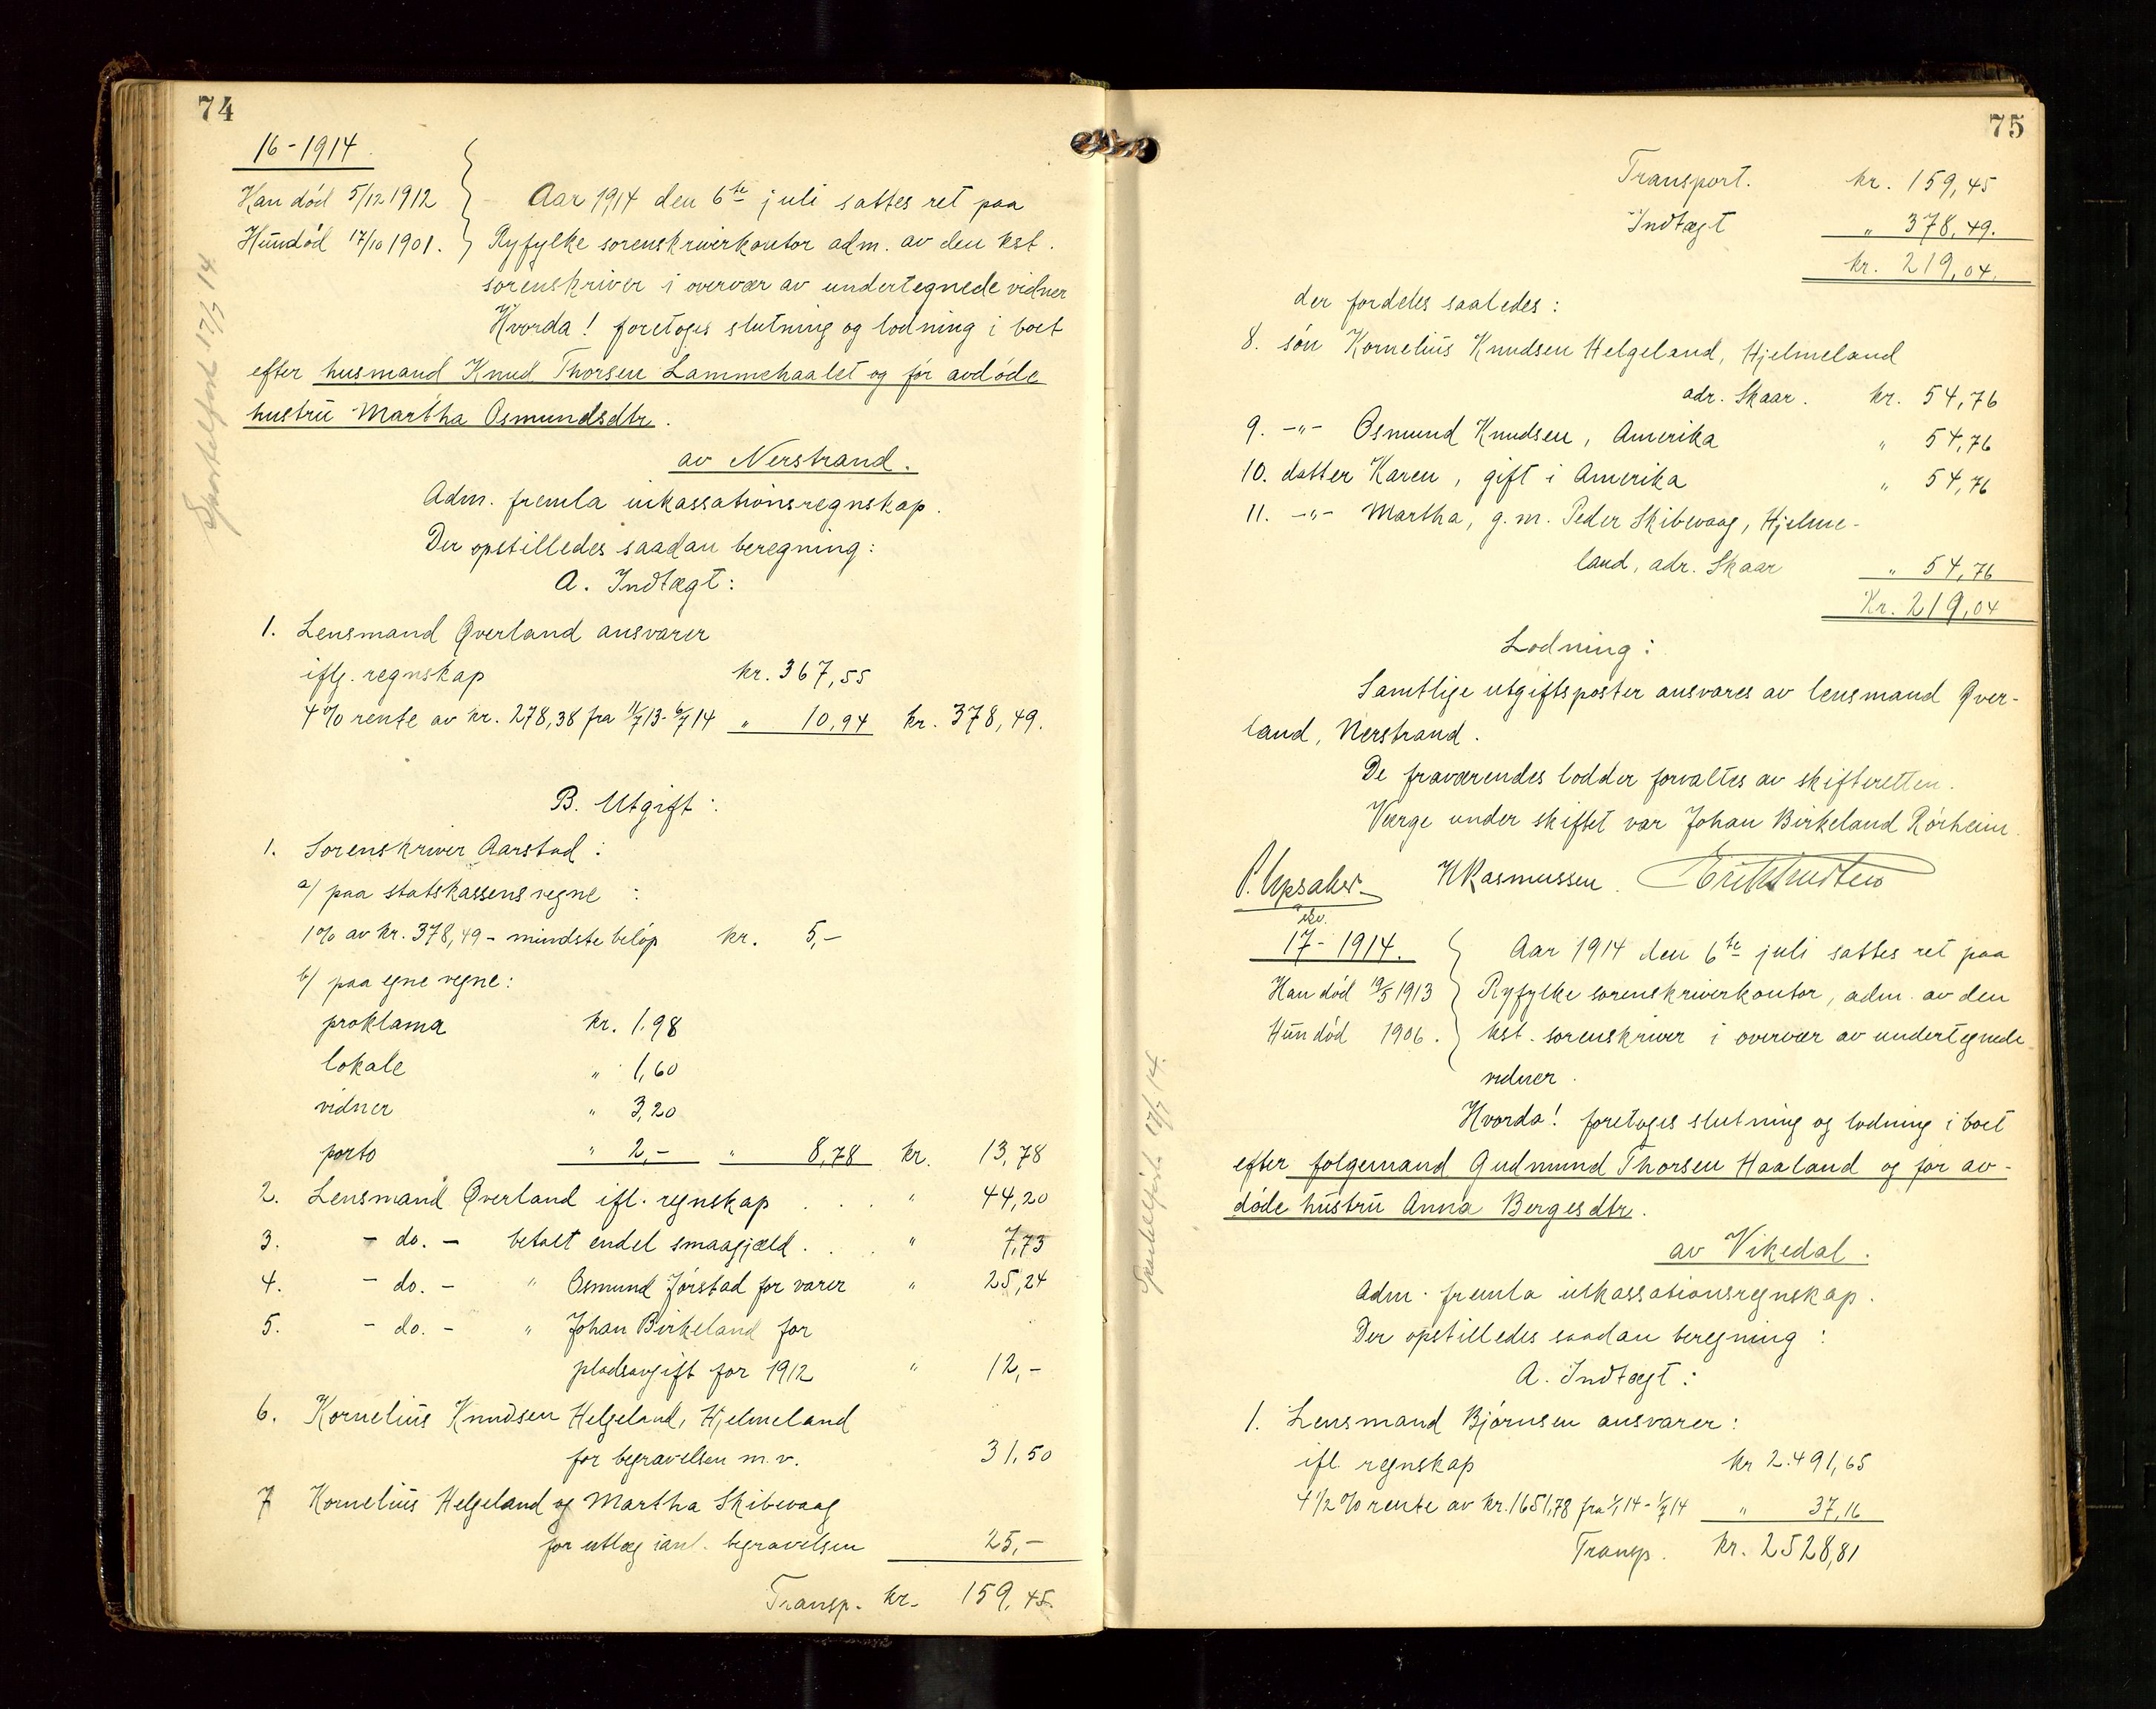 74
16 - 1914.
Han död 5/12 1912
Hun död 17/10 1901.
Aar 1914 den 6te juli sattes ret paa
Ryfylke sorenskriverkontor adm. av den kst.
sorenskriver i overvær av undertegnede vidner
Hvorda! foretoges slutning og lodning i boet
efter husmand Knud Thorsen Lammehaalet og før avdöde
hustru Martha Osmundsdtr.
av Nerstrand.
Adm. fremla inkassationsregnskap.
Der opstilledes saadan beregning:
A. Indtægt:
1. Lensmand Øverland ansvarer
iflg. regnskap kr. 367,55
4% rente av kr. 278,38 fra 11/7 13 - 6/7 14 " 10,94 kr. 378,49.
B. Utgift:
1. Sorenskriver Aarstad:
a/ paa statskassens vegne:
1% av kr. 378,49 - mindste beløp kr. 5,-
b/ paa egne vegne:
proklama kr. 1,98
lokale " 1,60
vidner " 3,20
porto " 2,- " 8,78 kr. 13,78
2. Lensmand Øverland ifl. regnskap . . . " 44,20
3. - do. - betalt endel smaagjæld . . . " 7,73
4. - do. - " Osmund Jørstad for varer " 25,24
5. - do. - " Johan Birkeland for
pladsavgift for 1912 " 12,-
6. Kornelius Knudsen Helgeland, Hjelmeland
for begravelsen m.v. 31,50
7 Kornelius Helgeland og Martha Skibevaag
for utlæg i anl. begravelsen 25,-
Transp. kr. 159,45.
Sportelført 17/7 14.
75
Transport. kr. 159,45
Indtægt " 378,49.
kr. 219,04.
der fordeles saaledes:
8. søn Kornelius Knudsen Helgeland, Hjelmeland
adr. Skaar. kr. 54,76
9. -"- Osmund Knudsen, Amerika " 54,76
10. datter Karen, gift i Amerika " 54,76
11. -"- Martha, g.m. Peder Skibevaag, Hjelme-
land, adr. Skaar " 54,76
Kr. 219,04
Lodning:
Samtlige utgiftsposter ansvares av lensmand Øver-
land, Nerstrand.
De fraværendes lodder forvaltes av skifteretten.
Værge under skiftet var Johan Birkeland Rørheim.
H Rasmussen.
17 - 1914.
Han död 19/5 1913
Hun död 1906.
Aar 1914 den 6te juli sattes ret paa
Ryfylke sorenskriverkontor, adm. av den
kst. sorenskriver i overvær av undertegnede
vidner.
Hvorda! foretoges slutning og lodning i boet
efter følgemand Gudmund Thorsen Haaland og før av-
døde hustru Anna Bergesdtr.
av Vikedal.
Adm. fremla inkassationsregnskap.
Der opstilledes saadan beregning:
A. Indtægt:
1. Lensmand Bjørnsen ansvarer:
ifl. regnskap kr 2.491,65
4 1/2 % rente av kr. 1651,78 fra 1/1 14 - 1/7 14 " 37,16
Transp. kr. 2528,81
Sportelført 17/7 14.